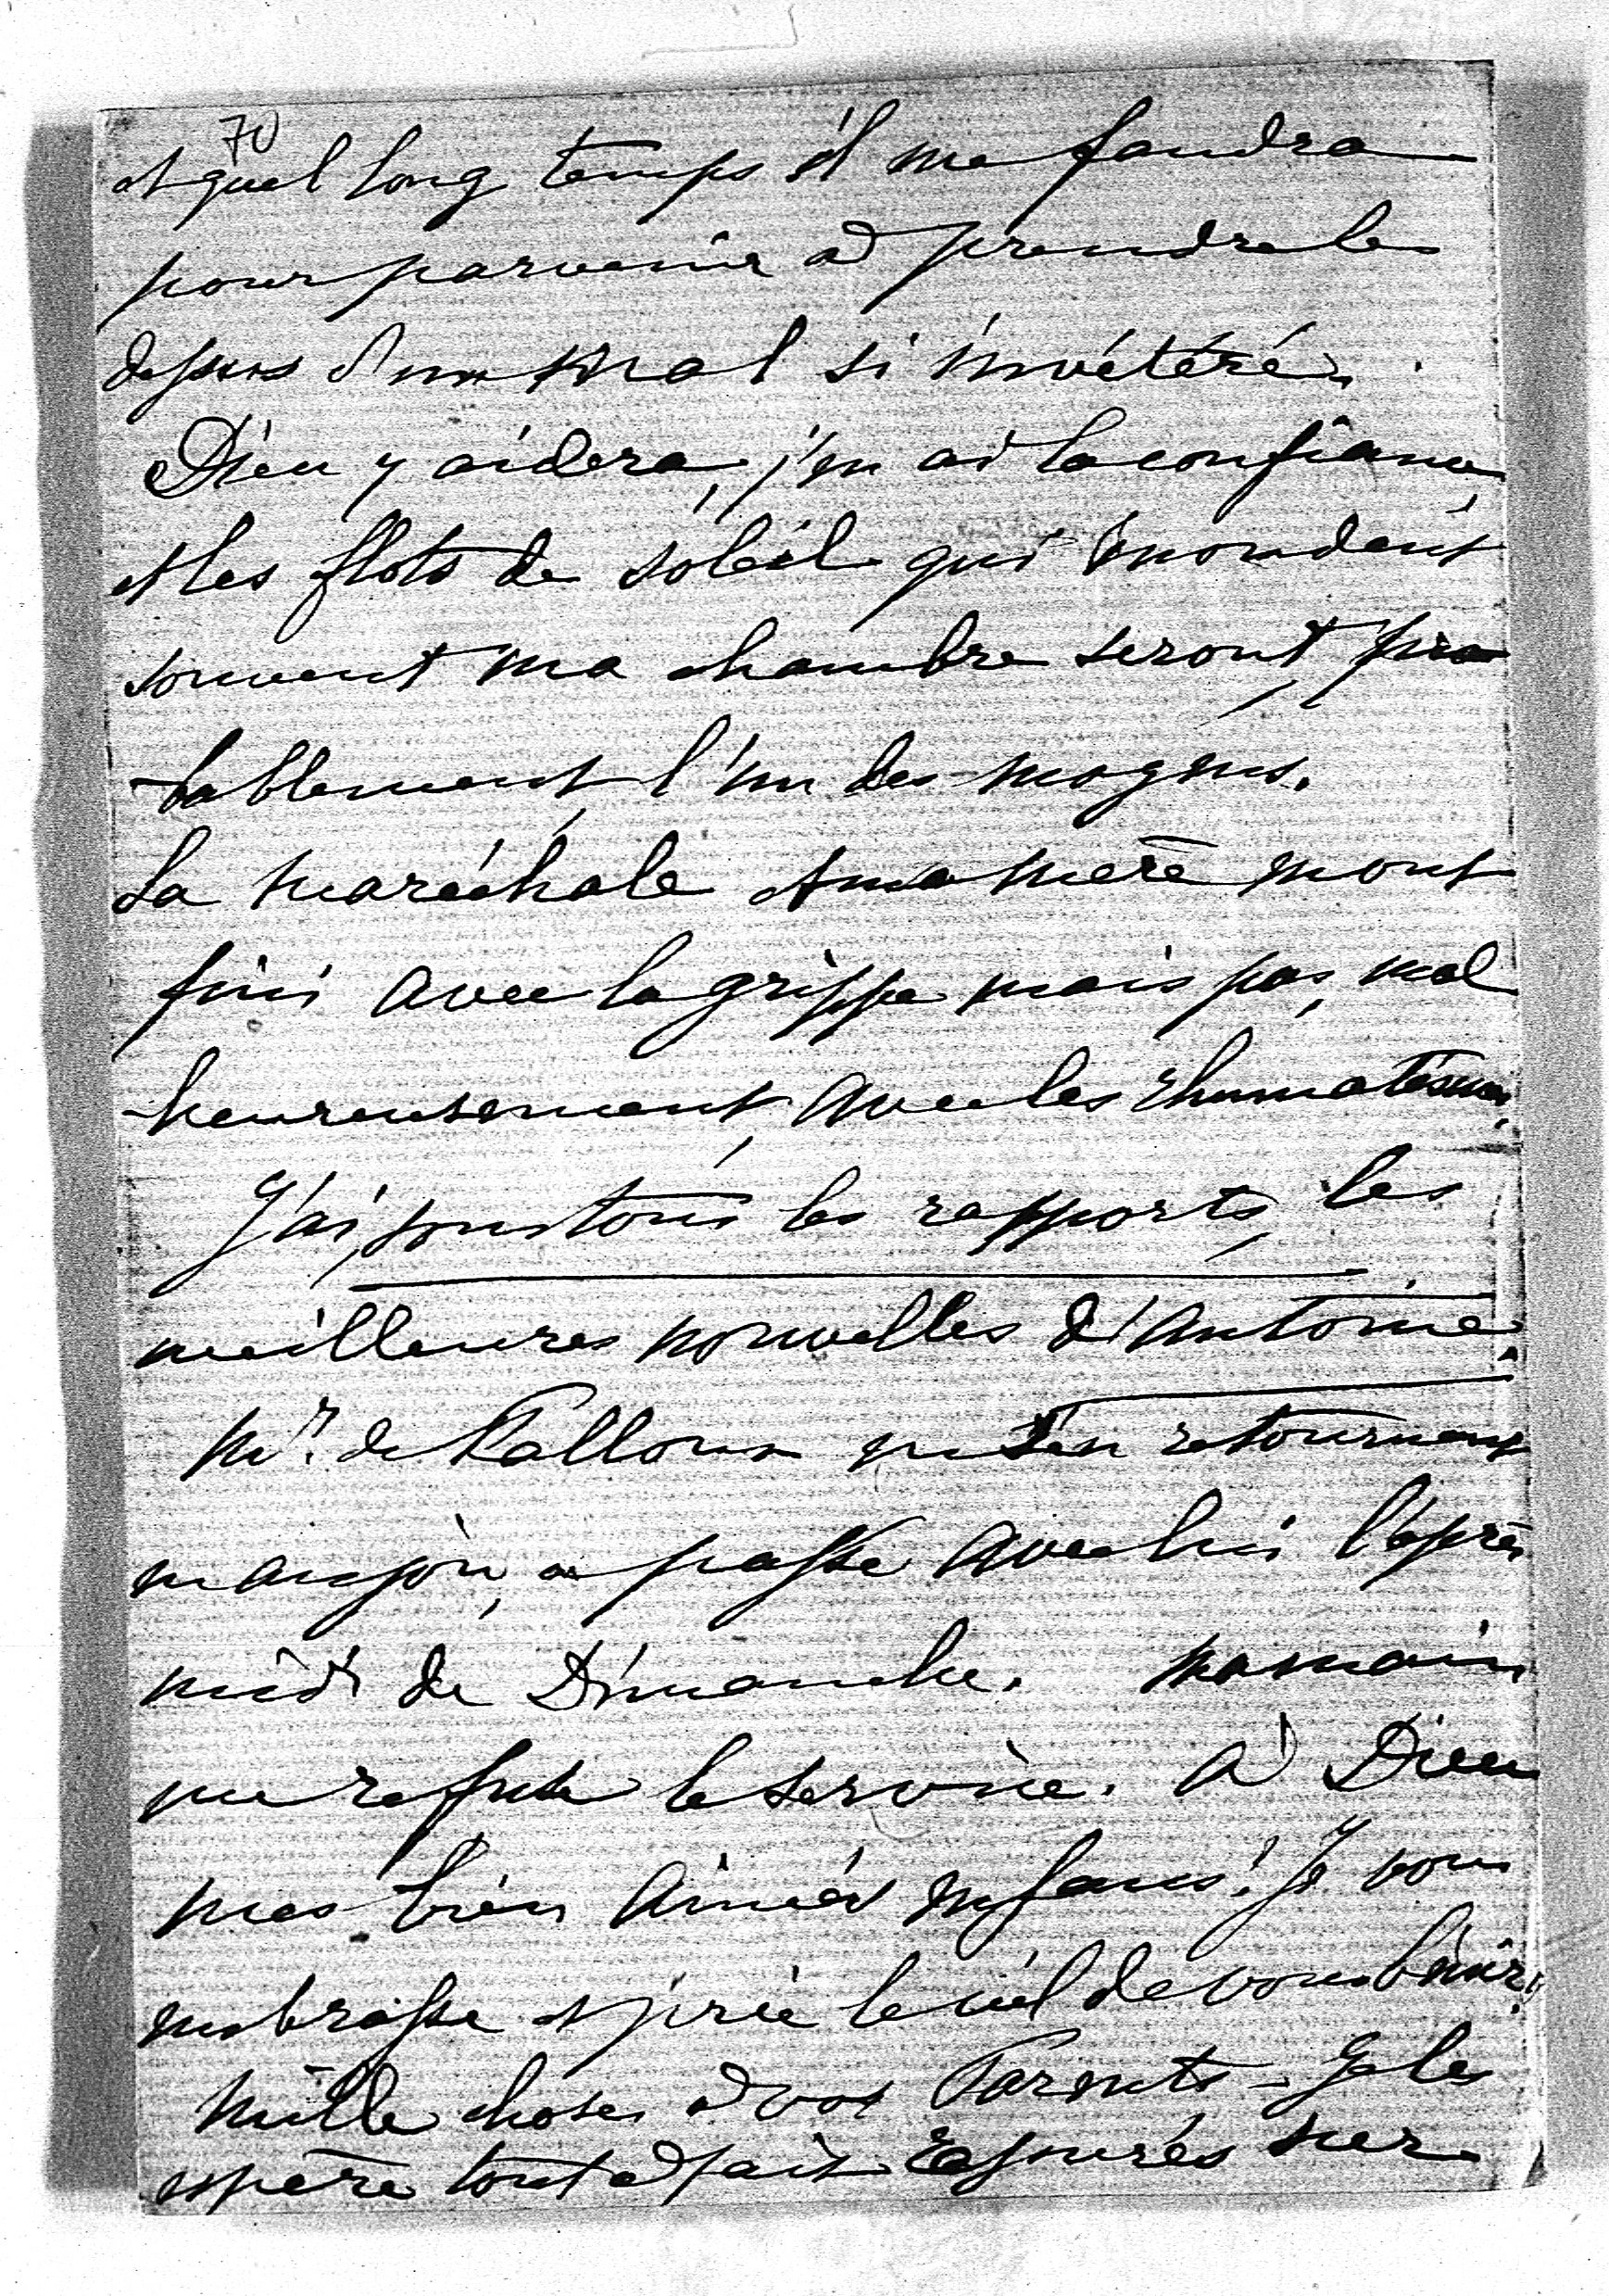 70
et quel long temps il me faudra
pour parvenir à prendre le
dessus d'un mal si invétéré.
Dieu y aidera, j'en ai la confiance,
et les flots de soleil qui inondent
souvent ma chambre seront, pro
-bablement, l'un des moyens.
La Maréchale et ma mère en ont
fini avec la grippe mais pas, mal
-heureusement, avec les rhumatismes.
J'ai, sous tous les rapports, les
meilleures nouvelles d'Antoine.
Mr. de Falloux en s'en retournant
en Anjou, a passé avec lui l'après
midi de Dimanche. Ma main
me refuse le service. A Dieu
mes bien aimés enfans! Je vous
embrasse et prie le ciel de vous bénir!
Mille choses à vos Parents - Je les
espère tout à fait rassurés sur